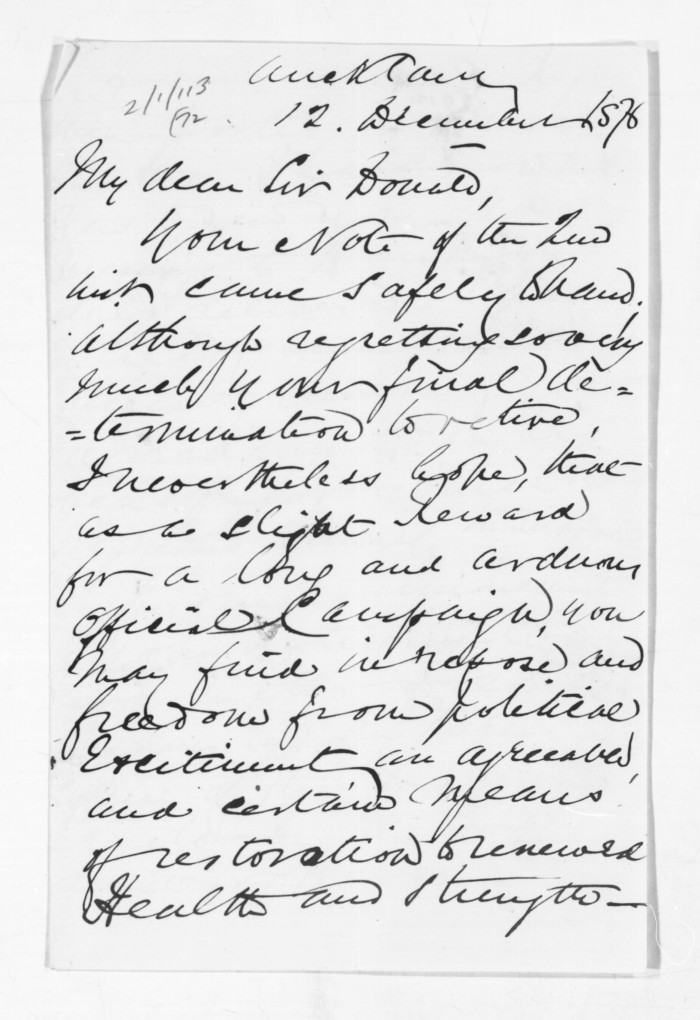 Auckland
2/1/113
/72
12. December 1876
My dear Sir Donald,
Your Note of the 2nd
inst came safely to hand,
although regretting so very
much your final de=
=termination to retire,
I nevertheless hope, that
as a slight reward
for a long and arduous
official Campaign, you
may find in repose and
freedom from political
Excitement an agreeable,
and certain Means
of restoration to renewed
Health and Strength—